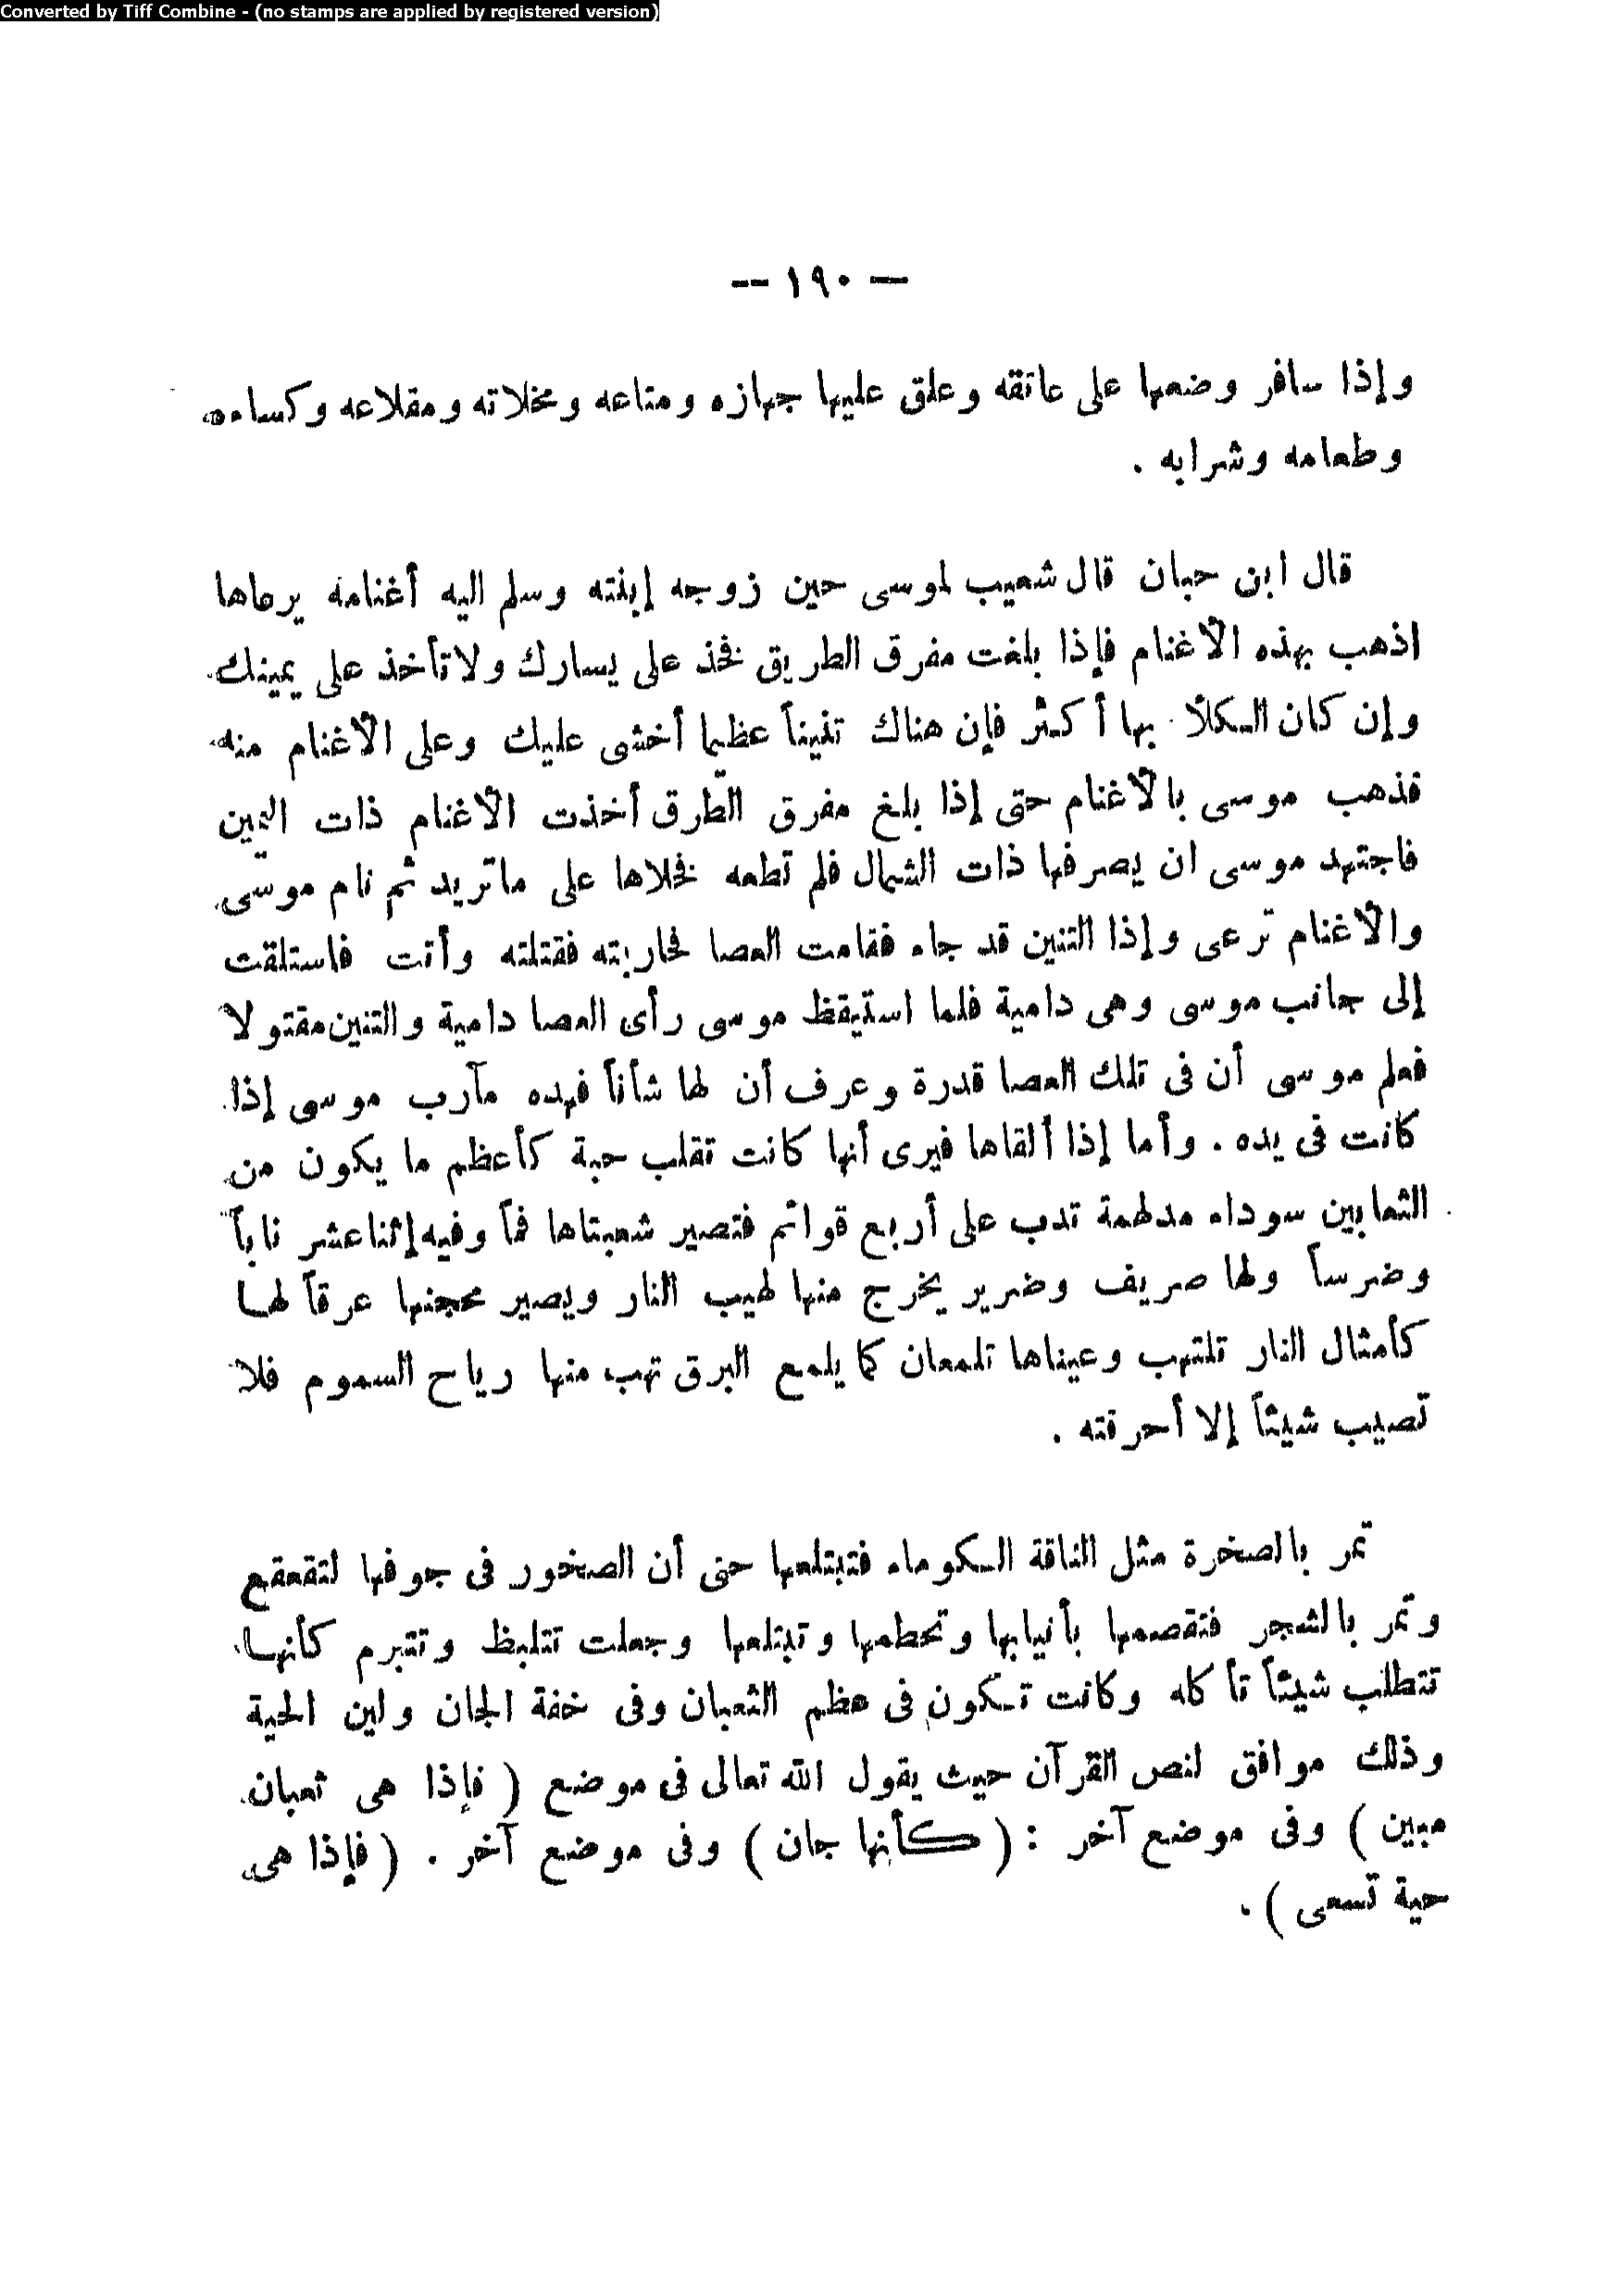 Converted by Tiff Combine - (no stamps are applied by registered version)
— ١٩٠ —
وإذا سافر وضعها على عاتقه وعلق عليها جهازه ومتاعه ومخلاته ومقلاعه وكساءه
وطعامه وشرابه .
قال ابن حبان قال شعيب لموسى حين زوجه إبنته وسلم اليه أغنامه يرعاها
اذهب بهذه الأغنام فإذا بلغت مفرق الطريق فخذ على يسارك ولا تأخذ على يمينك
وإن كان الكلأ بها أكثر فإن هناك تنيناً عظيما أخشى عليك وعلى الأغنام منه
فذهب موسى بالأغنام حتى إذا بلغ مفرق الطرق أخذت الأغنام ذات اليمين
فاجتهد موسى ان يصرفها ذات الشمال فلم تطعه فخلاها على ما تريد ثم نام موسى
والأغنام ترعى وإذا التنين قد جاء فقامت العصا فحاربته فقتلته وأتت فاستلقت
إلى جانب موسى وهى دامية فلما استيقظ موسى رأى العصا دامية والتنين مقتولا
فعلم موسى أن فى تلك العصا قدرة وعرف أن لها شأناً فهذه مآرب موسى إذا
كانت فى يده . وأما إذا ألقاها فيرى أنها كانت تقلب حية كأعظم ما يكون من
الثعابين سوداء مدلهمة تدب على أربع قوائم فتصير شعبتاها فماً وفيه إثنا عشر ناباً
وضرساً ولها صريف وضرير يخرج منها لهيب النار ويصير محجنها عرقاً لها
كأمثال النار تلتهب وعيناها تلمعان كما يلمع البرق تهب منها رياح السموم فلا
تصيب شيئاً إلا أحرقته .
تمر بالصخرة مثل الناقة الكوماء فتبتلعها حتى أن الصخور فى جوفها لتقعقع
وتمر بالشجر فتقصمها بأنيابها وتحطمها وتبتلعها وجعلت تتلبظ وتتبرم كأنها
تتطلب شيئاً تأكله وكانت تكون فى عظم الثعبان وفى خفة الجان ولين الحية
وذلك موافق لنص القرآن حيث يقول الله تعالى فى موضع ( فإذا هى ثعبان
مبين ) وفى موضع آخر : ( كأنها جان ) وفى موضع آخر . ( فإذا هى
حية تسعى ) .